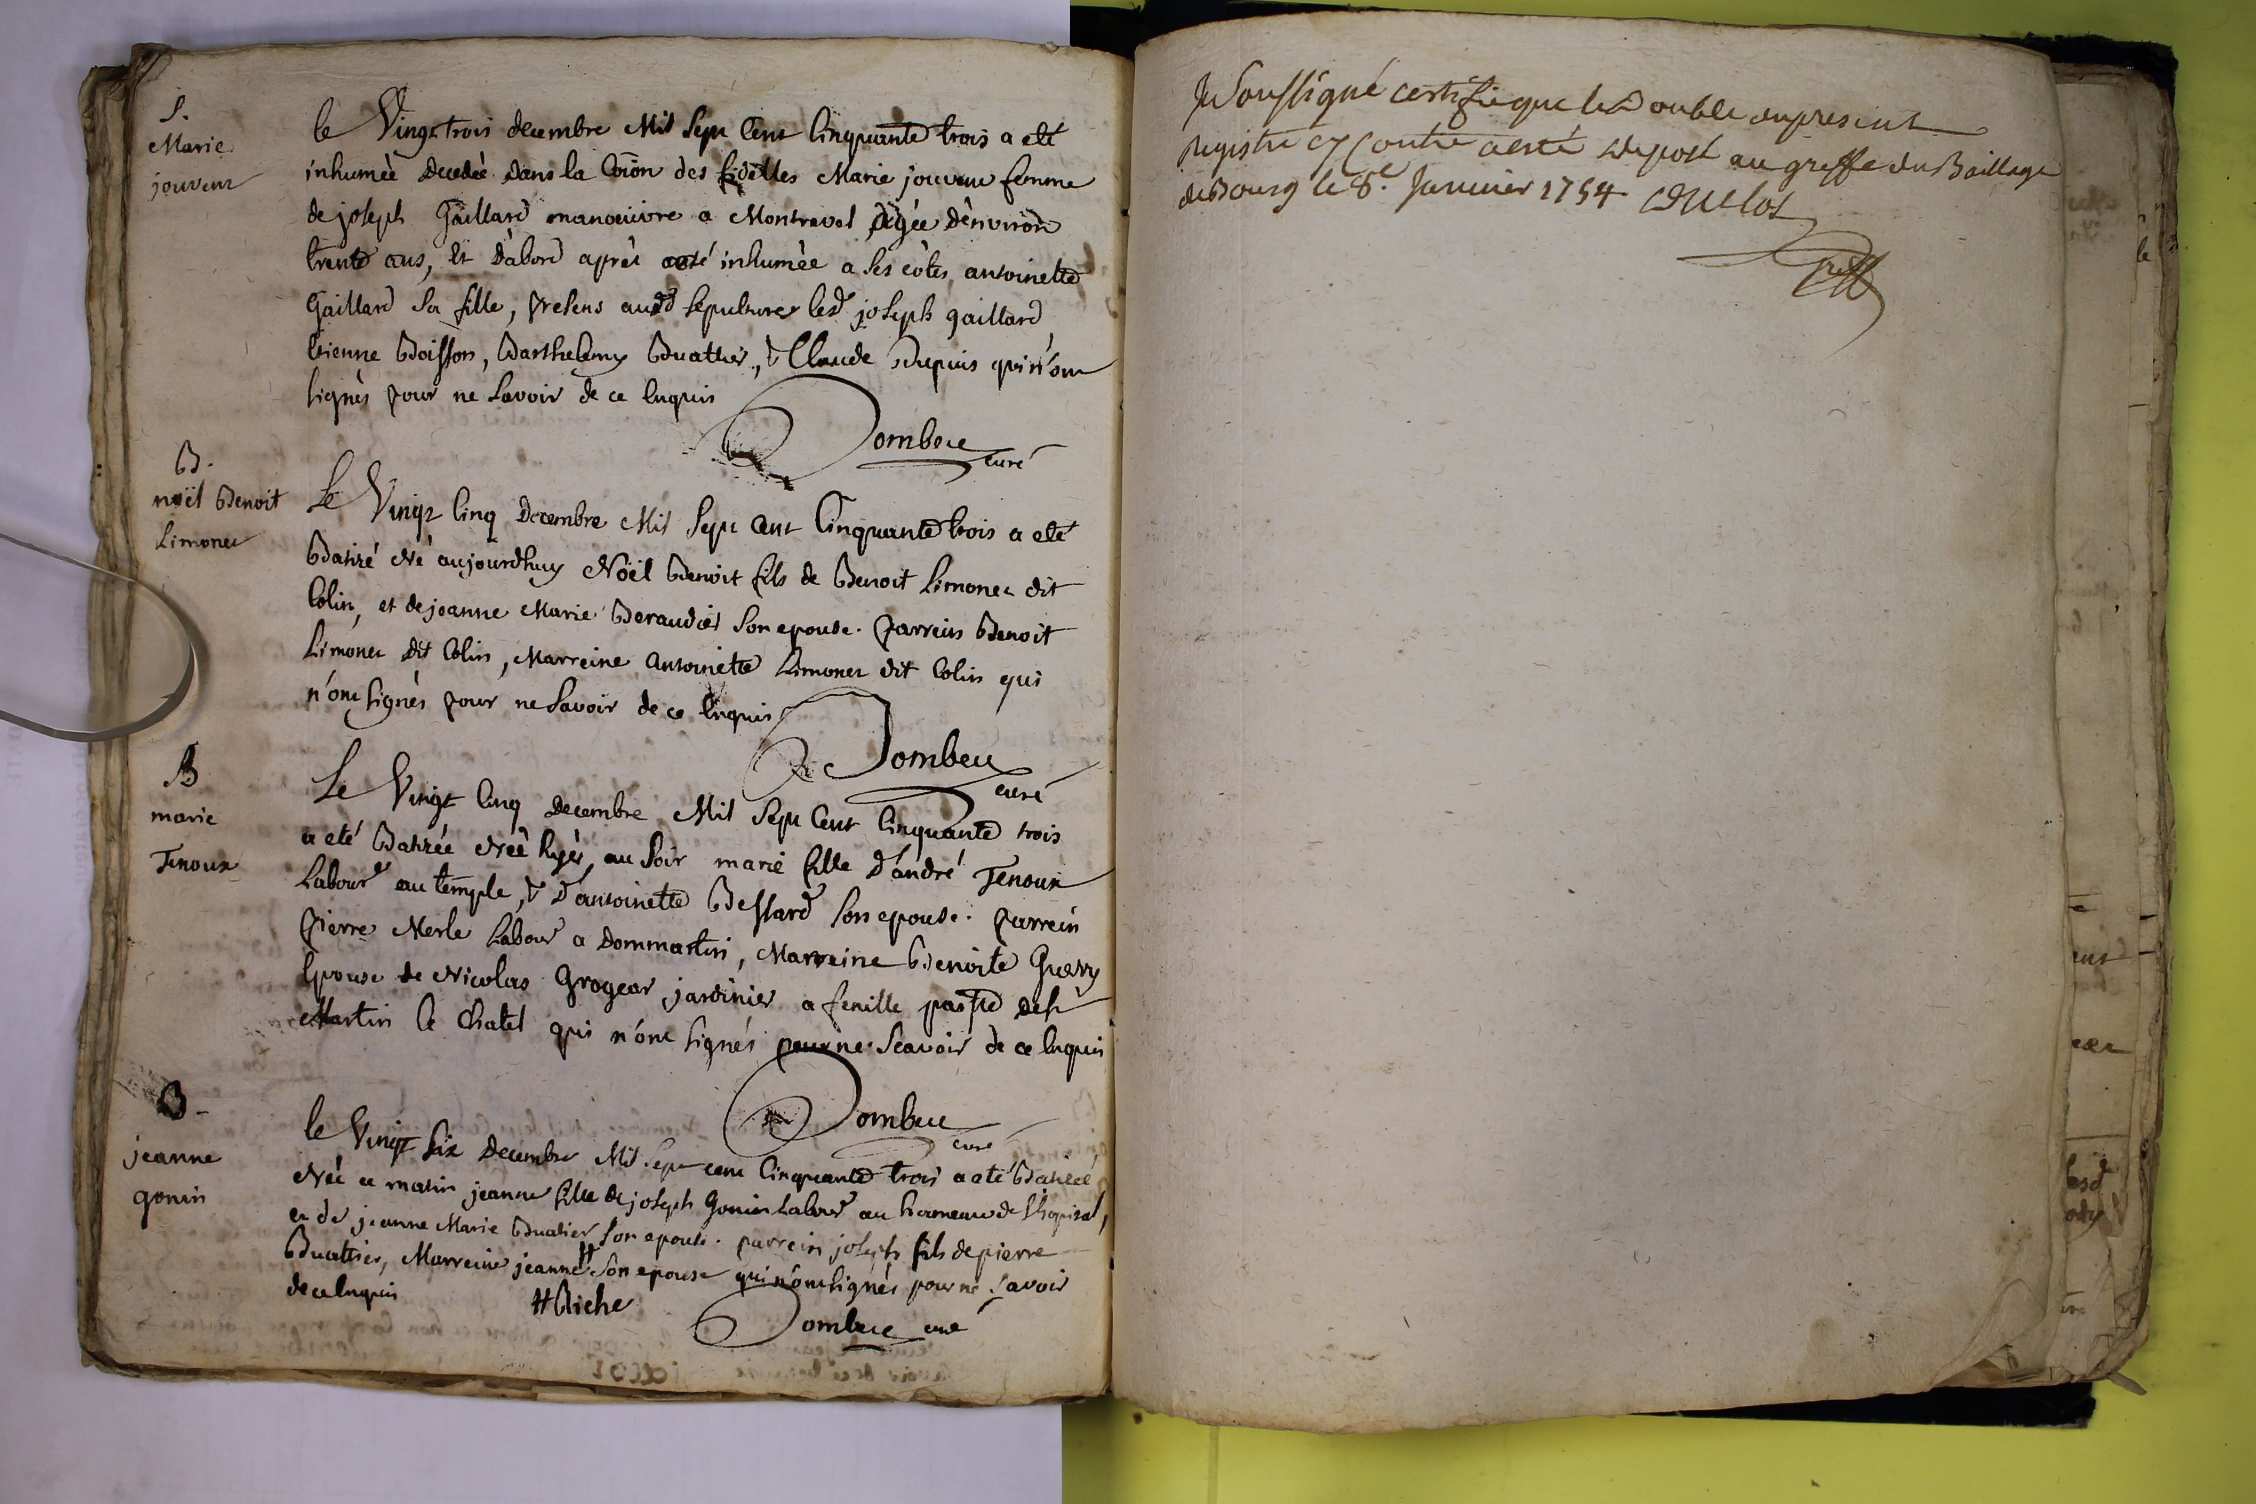 S.
Marie
jouvent
le Vingt trois decembre Mil Sept Cent Cinquante trois a eté
inhumée decedée dans la Coion des fidelles Marie jouvent femme
de joseph Gaillard manoeuvre a Montrevel agée d'environ
trente ans, et d'abord aprés a eté inhumée a ses côtes antoinette
Gaillard sa fille, presens aud sepultures led joseph gaillard
Etienne Boisson, Barthelemy Buathier, & Claude Dupuis qui n'ont
signés pour ne savoir de ce Enquis
Dombey
curé
B.
noël Benoit
Limonet
Le Vingt Cinq Decembre Mil Sept Cent Cinquante trois a eté
Batisé Né aujourdhuy Nöel Benoit fils de Benoit Limonet dit
Colin, et de jeanne Marie Beraudier son epouse. parrein Benoit
Limonet dit Colin, Marreine antoinette Limonet dit Colin qui
n'ont signés pour ne savoir de ce Enquis
Dombey
curé
B
marie
Tenoux
Le Vingt Cinq Decembre Mil Sept Cent Cinquante trois
a eté Batisée Née hyer au soir marie fille d'andré Tenoux
Labour au temple, & d'antoinette Bessard son epouse. parrein
pierre Merle Labour a Dommartin, Marreine Benoite
Epouse de Nicolas jardinier a fenille de St
Martin le Chatel qui n'ont signés pour ne scavoir de ce Enquis
Dombey
curé
B.
jeanne
gonin
le Vingt six Decembre Mil Sept cent Cinquante trois a eté Batisée
Née ce matin jeanne fille de joseph Gonin Labour au hameau de l'hopital,
et de jeanne Marie Buatier son epouse. parrein joseph fils de pierre
Buattier, Marreine jeanne # Son epouse qui n'ont signés pour ne savoir
de ce Enquis
# Riche
Dombey curé
Je Soussigné certifie que le Double du present
Registre cy Contre a esté deposé au greffe du Bailliage
de Bourg le 8e. Janvier 1754 Duclos